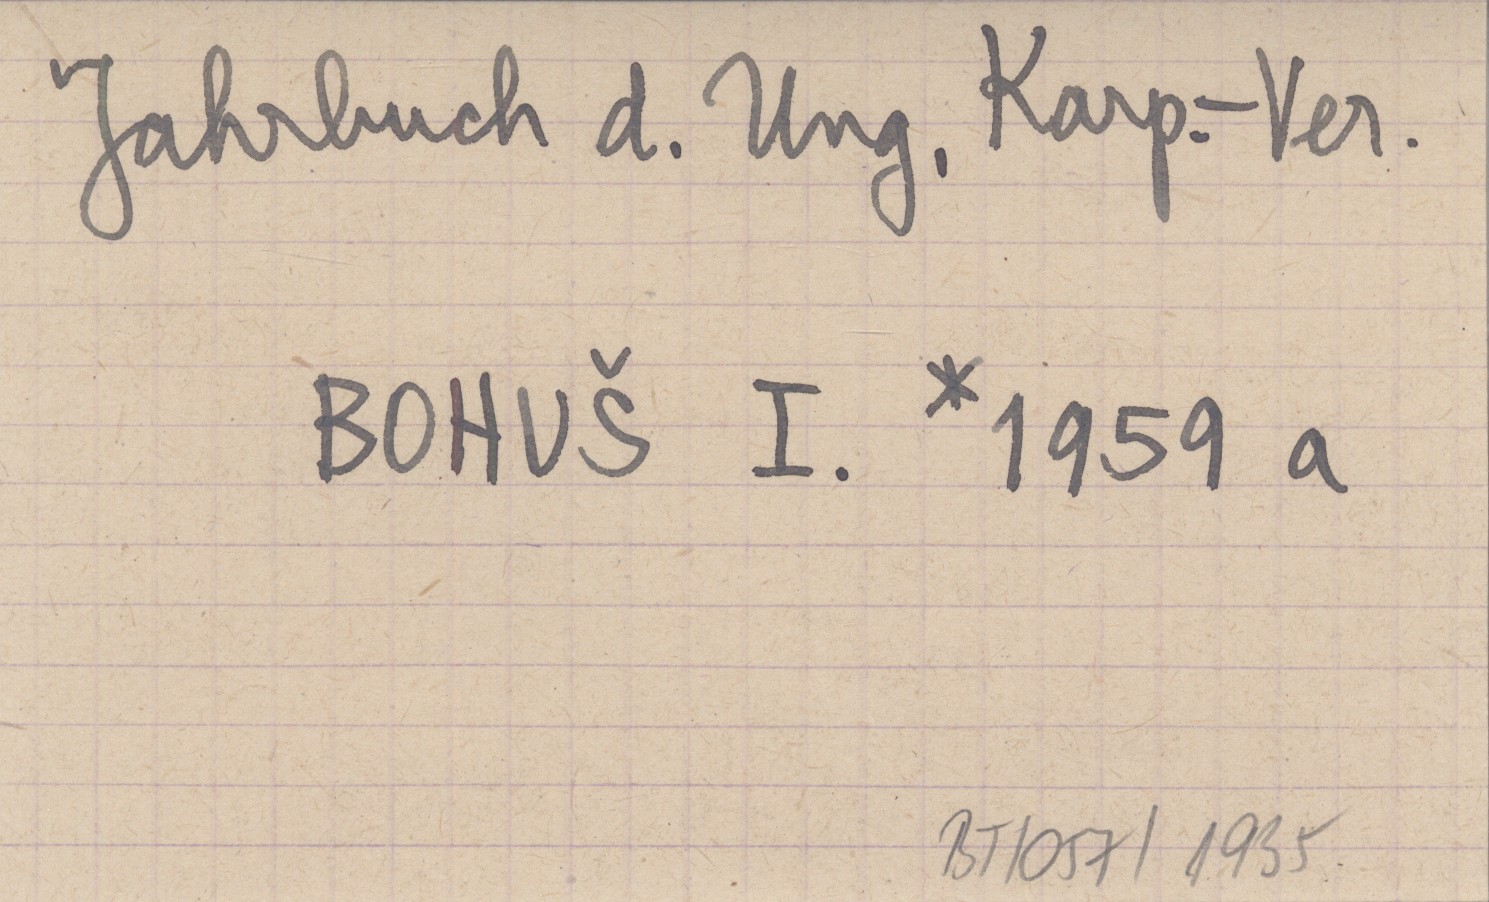 Jahrbuch d. Ung. Karp.-Ver.
BOHUŠ I. *1959 a
BT/057/ 1935